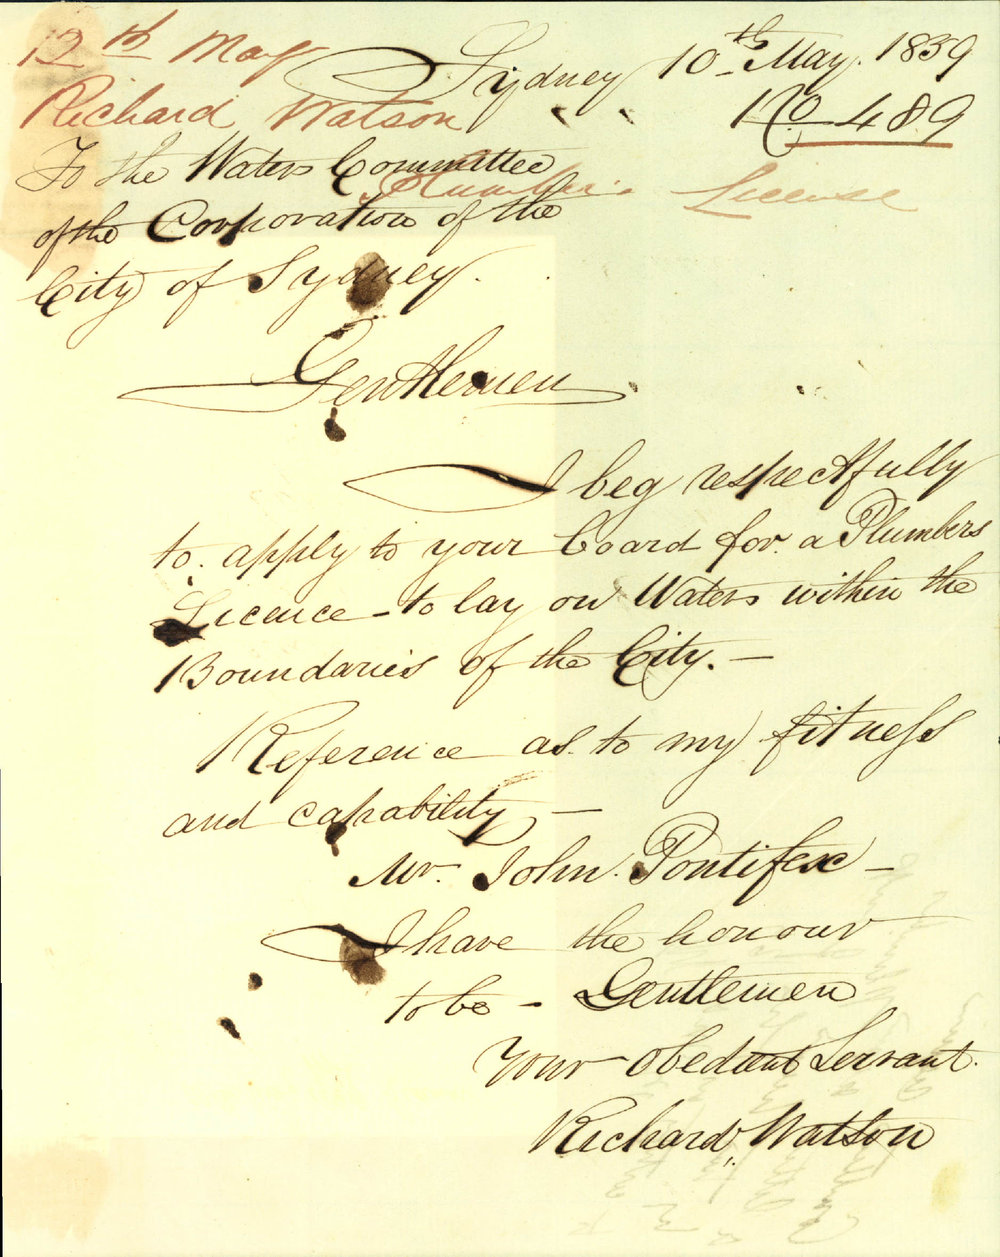 12th May
Sydney 10th May. 1859
Richard Watson
No 489
To the Water Committee
Plumber's License
of the Corporation of the
City of Sydney.
Gentlemen
I beg respectfully
to apply to your board for a Plumbers
Licence - to lay on Water within the
Boundaries of the City. -
Reference as to my fitness
and capability -
Mr. John Pontifex -
I have the honour
to be - Gentlemen
Your obedient Servant.
Richard Watson